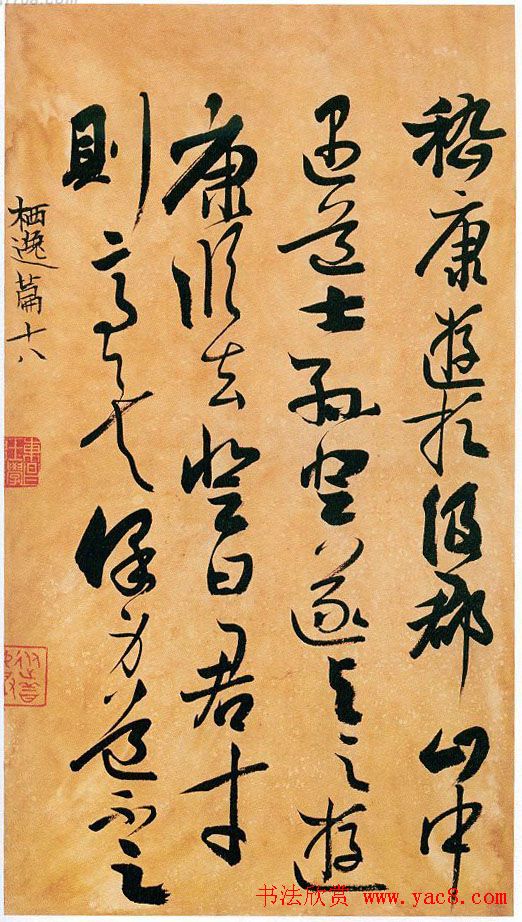 嵇康遊於汲郡山中
遇道士孫登遂与之遊
康臨去登曰君才
則高矣保身道不足
栖逸篇十八
书法欣赏 www.yac8.com